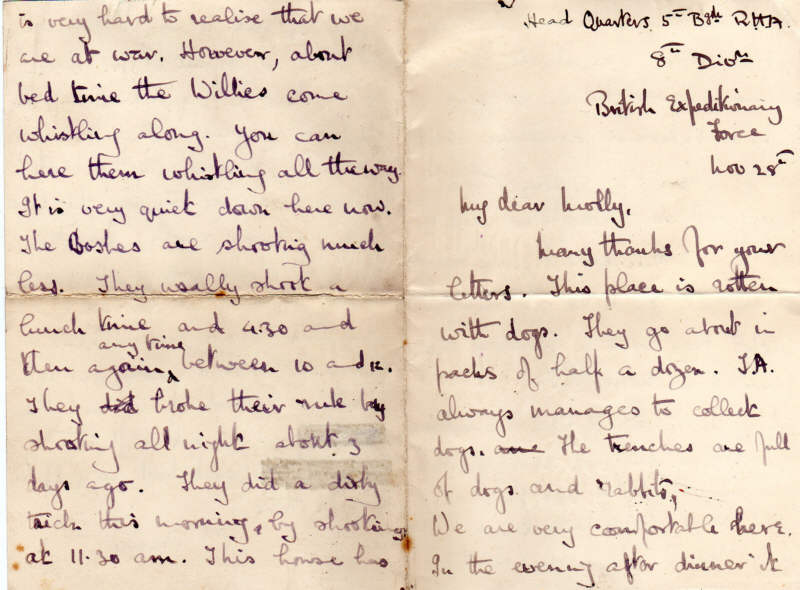 Head Quarters. 5th Bgde RHA.
8th Divn
British Expeditionary
Force
Nov 28th
My dear Molly,
Many thanks for your
letters. This place is rotten
with dogs. They go about in
packs of half a dozen. T.A.
always manages to collect
dogs. The trenches are full
of dogs and rabbits,
We are very comfortable here.
In the evening after dinner it
is very hard to realise that we
are at war. However, about
bed time the Willies come
whistling along. You can
here them whistling all the way.
It is very quiet down here now.
The Boshes are shooting much
less. They usally shoot a
lunch time and 4.30 and
then again any time between 10 and 12.
They broke their rule by
shooting all night about 3
days ago. They did a dirty
trick this morning, by shooting
at 11.30 am. This house has